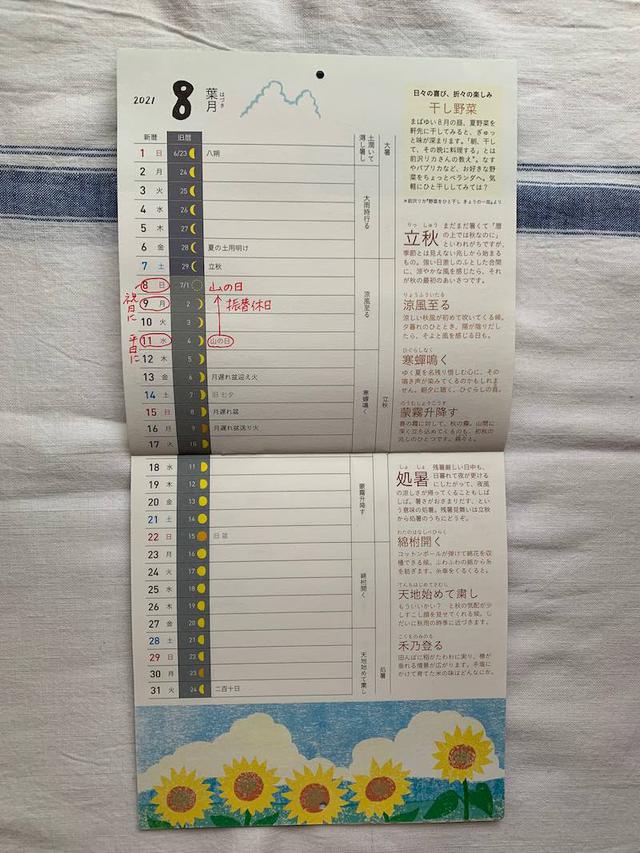 2021 8 葉月
はづき
新暦 旧暦
1 日 6/23 八朔
2 月 24
3 火 25
4 水 26
5 木 27
6 金 28 夏の土用明け
7 土 29 立秋
8 日 7/1 山の日
祝日に
9 月 2 振替休日
10 火 3
平日に
11 水 4 山の日
12 木 5
13 金 6 月遅れ盆迎え火
14 土 7 旧七夕
15 日 8 月遅れ盆
16 月 9 月遅れ盆送り火
17 火 10
18 水 11
19 木 12
20 金 13
21 土 14
22 日 15 旧盆
23 月 16
24 火 17
25 水 18
26 木 19
27 金 20
28 土 21
29 日 22
30 月 23
31 火 24 二百十日
土潤いて溽し暑し
大雨時行る
涼風至る
寒蟬鳴く
蒙霧升降す
綿柎開く
天地始めて粛し
大暑
立秋
処暑
日々の喜び、折々の楽しみ
干し野菜
まばゆい8月の昼、夏野菜を
軒先に干してみると、ぎゅっ
と味が深まります。「朝、干し
て、その晩に料理する」とは
前沢リカさんの教え*。なす
やパプリカなど、お好きな野
菜をちょっとベランダへ。気
軽にひと干ししてみては?
*前沢リカ『野菜をひと干し きょうの一皿』より
りっしゅう
立秋
まだまだ暑くて「暦
の上では秋なのに」
といわれがちですが、
季節とは見えない兆しから始まる
もの。強い日差しのふとした合間
に、涼やかな風を感じたら、それ
が秋の最初のあいさつです。
りょうふういたる
涼風至る
涼しい秋風が初めて吹いてくる候。
夕暮れのひととき、陽が陰りだし
たら、そよと風を感じる日も。
ひぐらしなく
寒蟬鳴く
ゆく夏を名残り惜しむ心に、その
鳴き声が染みてくるのかもしれま
せん。朝夕に聴く、ひぐらしの音。
のうむしょうこうす
蒙霧升降す
春の霞に対して、秋の霧。山間に
深く立ち込めてくるのも、初秋の
兆しのひとつです。霧々と。
しょしょ
処暑
残暑厳しい日中も、
日暮れて夜が更ける
にしたがって、夜風
の涼しさが帰ってくることもしば
しば。暑さがおさまりだす、とい
う意味の処暑。残暑見舞いは立秋
から処暑のうちにどうぞ。
わたのはなしべひらく
綿柎開く
コットンボールが弾けて綿花を収
穫できる候。ふわふわの綿から糸
を紡ぎます。糸車をくるくると。
てんちはじめてさむし
天地始めて粛し
もういいかい? と秋の気配が少
しずつこし顔を見せてくれる候。し
だいに秋雨の時季に近づきます。
こくものみのる
禾乃登る
田んぼに稲がたわわに実り、穂が
垂れる情景が広がります。手塩に
かけて育てた米の味はどんなにか。